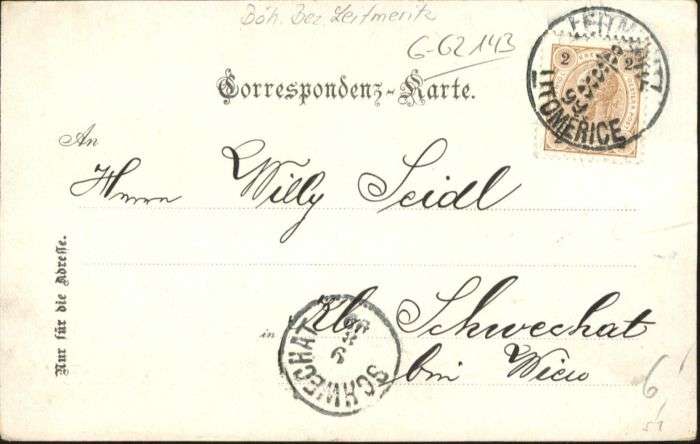 Böh. Bez. Leitmeritz
6-62143
Correspondenz-Karte.
2 2
LEITMERITZ
99
LITOMERICE
An
Herrn Willy Seidl
Nur für die Adresse.
in Kl. Schwechat
bei Wien
SCHWECHAT
6